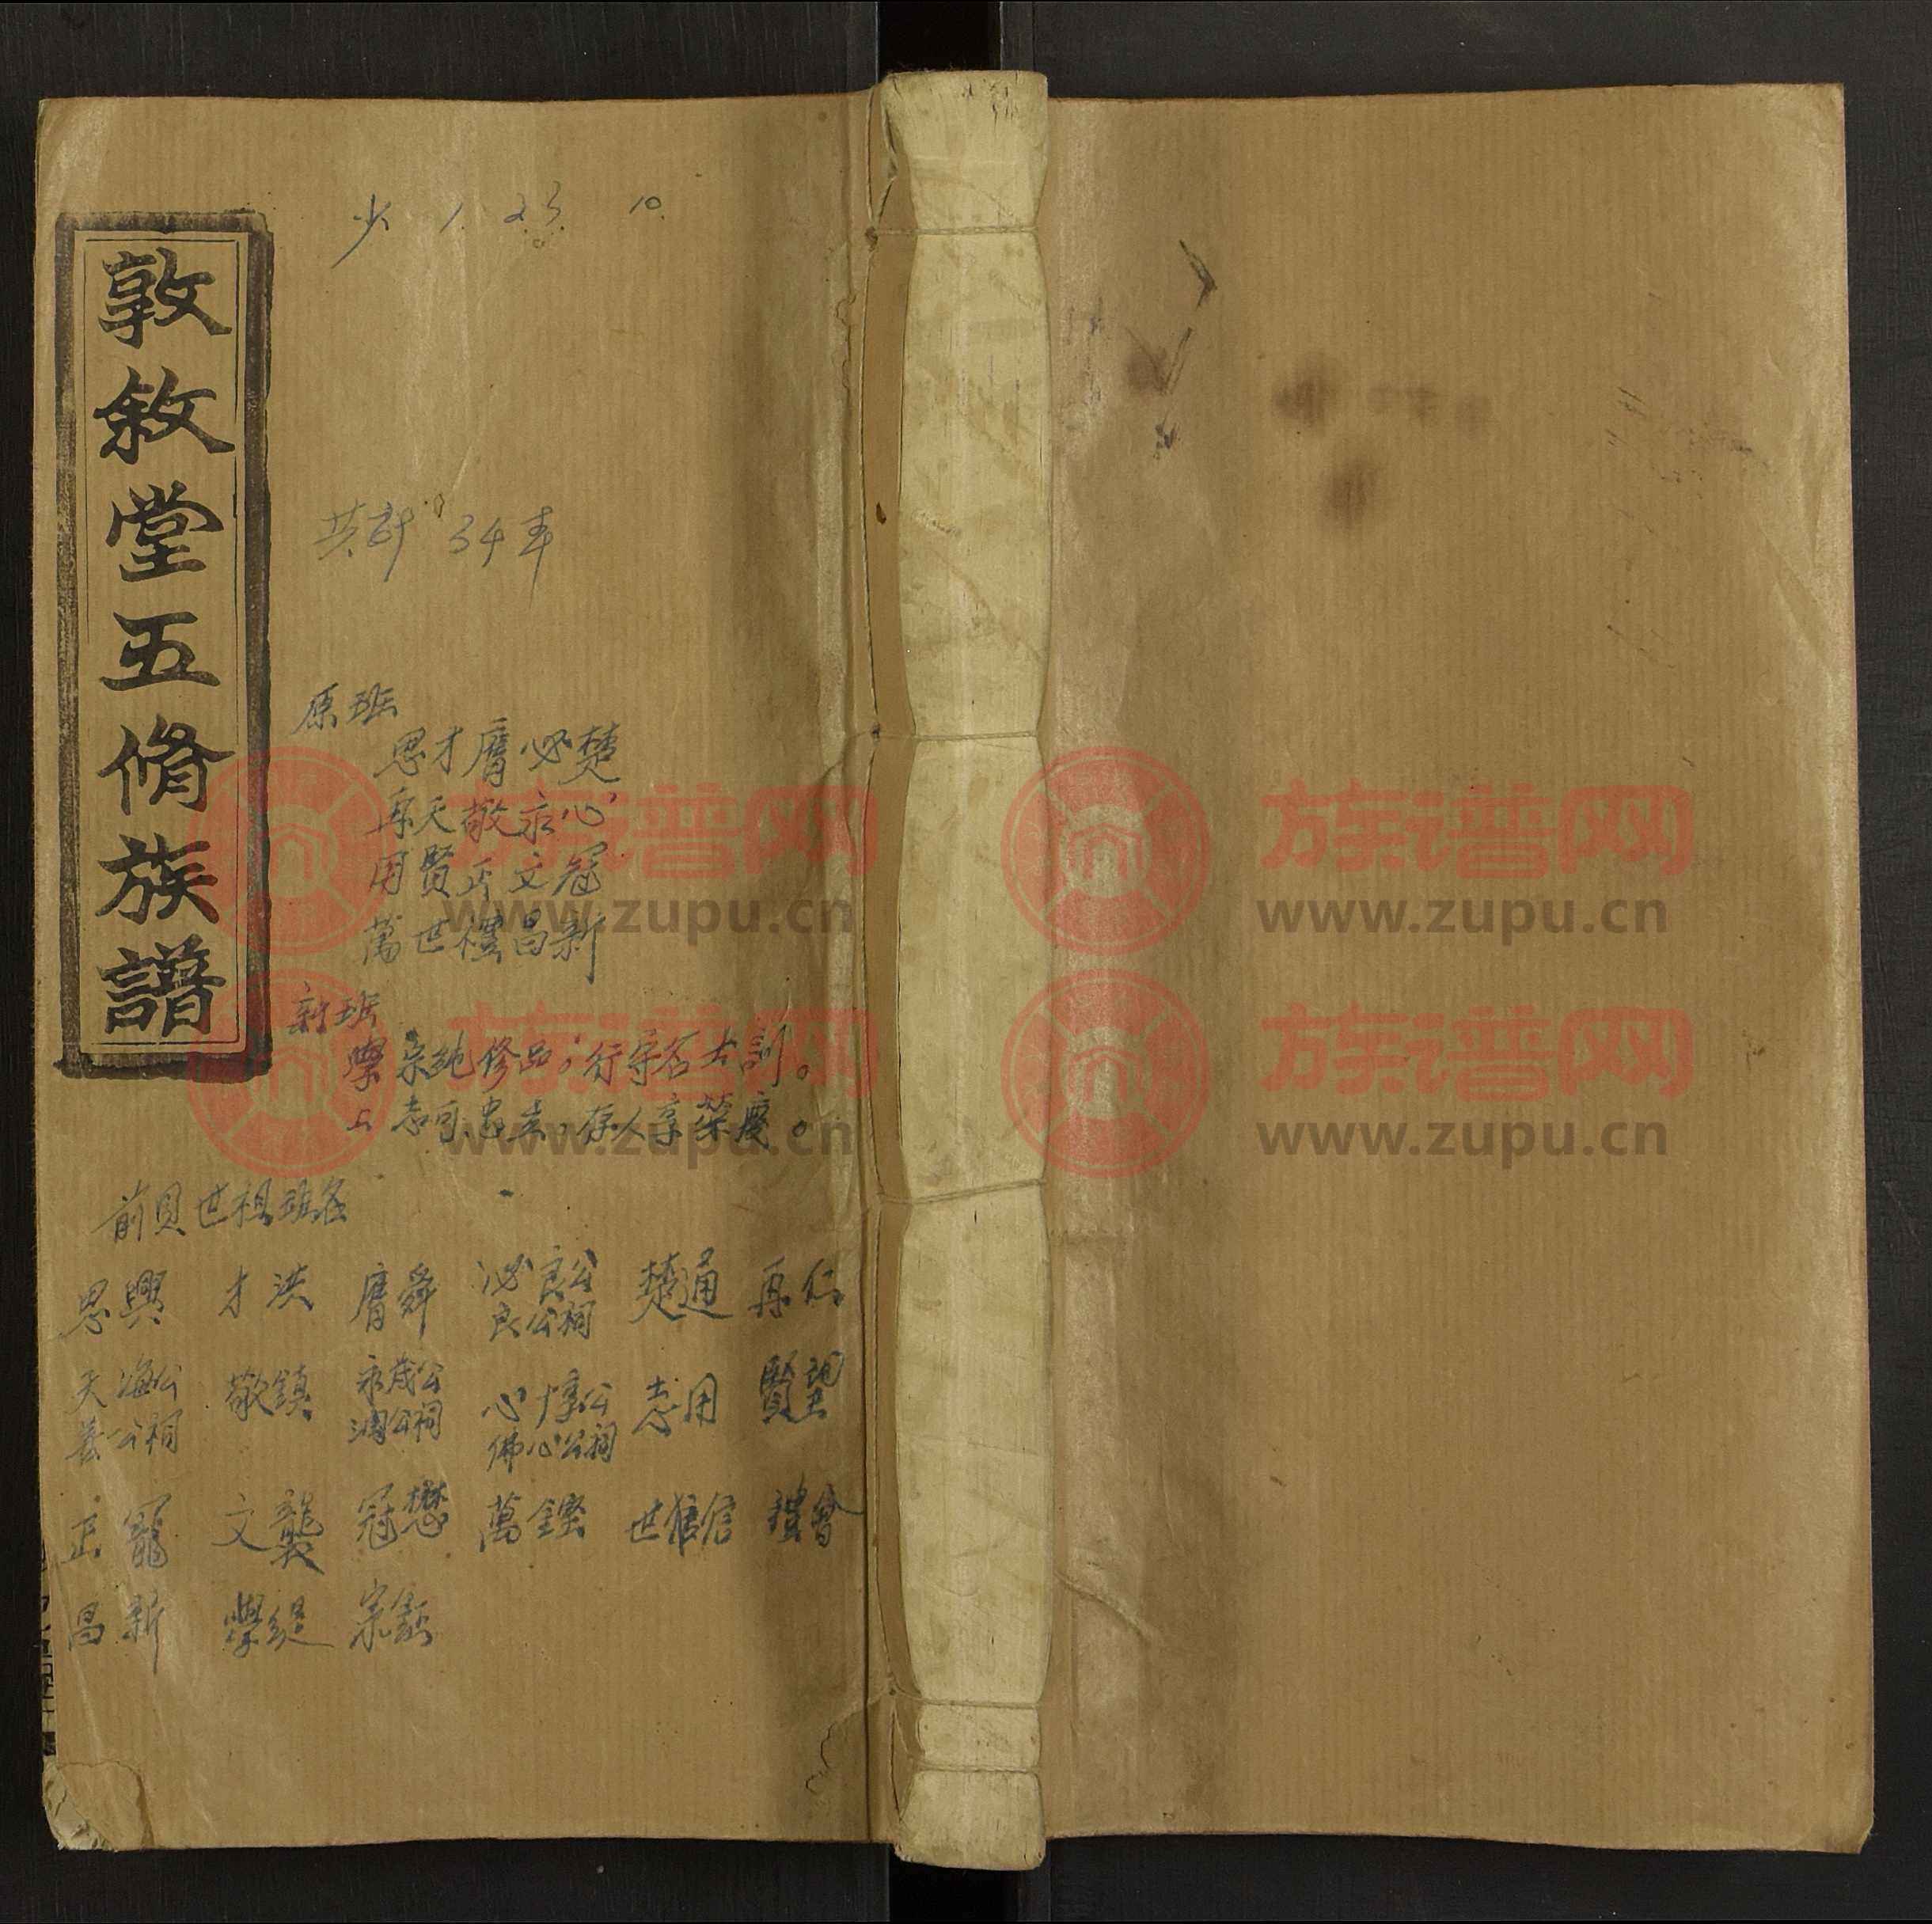 敦敘堂五脩族譜
少 1. 23 10.
共計 34年
原班
思才膺必楚
再天敬永心
用賢正文冠
萬世禮昌新
新班
學宗純修品，行守名大訓。
上志可忠，存人享荣慶。
前頁世祖班名
思興 才洪 膺舜 泌良公 楚通 再仁
良公祠
天海公 敬鎮 永茂公 心惇公 志用 賢望
公祠 鴻公祠 佛心公祠
正寵 文龔 冠懋 萬鏗 世信 鐄會
昌新 學緹 宗
族谱网
www.zupu.cn
族谱网
www.zupu.cn
族谱网
www.zupu.cn
族谱网
www.zupu.cn